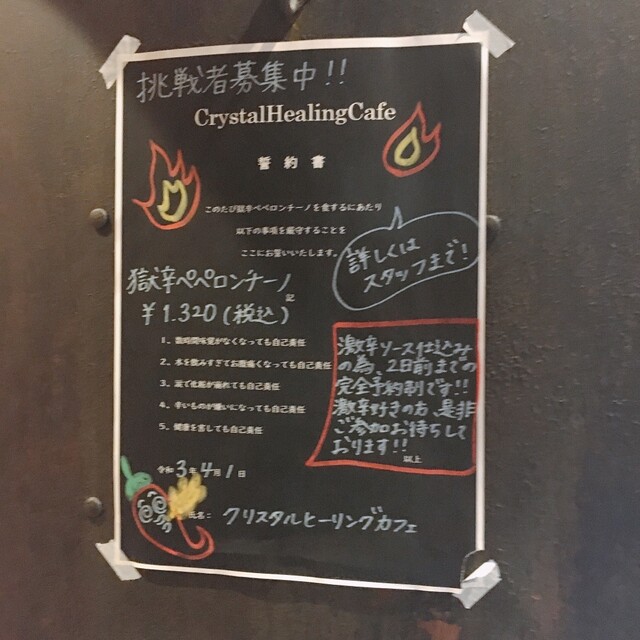 挑戦者募集中!!
CrystalHealingCafe
誓約書
このたび獄辛ペペロンチーノを食するにあたり
以下の事項を厳守することを
ここにお誓いいたします。
詳しくは
スタッフまで!
獄辛ペペロンチーノ
記
¥1.320(税込)
1、数時間味覚がなくなっても自己責任
2、水を飲みすぎてお腹痛くなっても自己責任
3、涙で化粧が崩れても自己責任
4、辛いものが嫌いになっても自己責任
5、健康を害しても自己責任
激辛ソース仕込み
の為、2日前までの
完全予約制です!!
激辛好きの方、是非
ご参加お待ちして
おります!!
以上
令和3年4月1日
氏名: クリスタルヒーリングカフェ